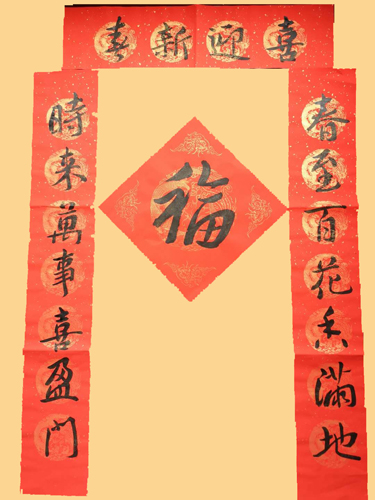 喜迎新春
春至百花香滿地
時来萬事喜盈門
福